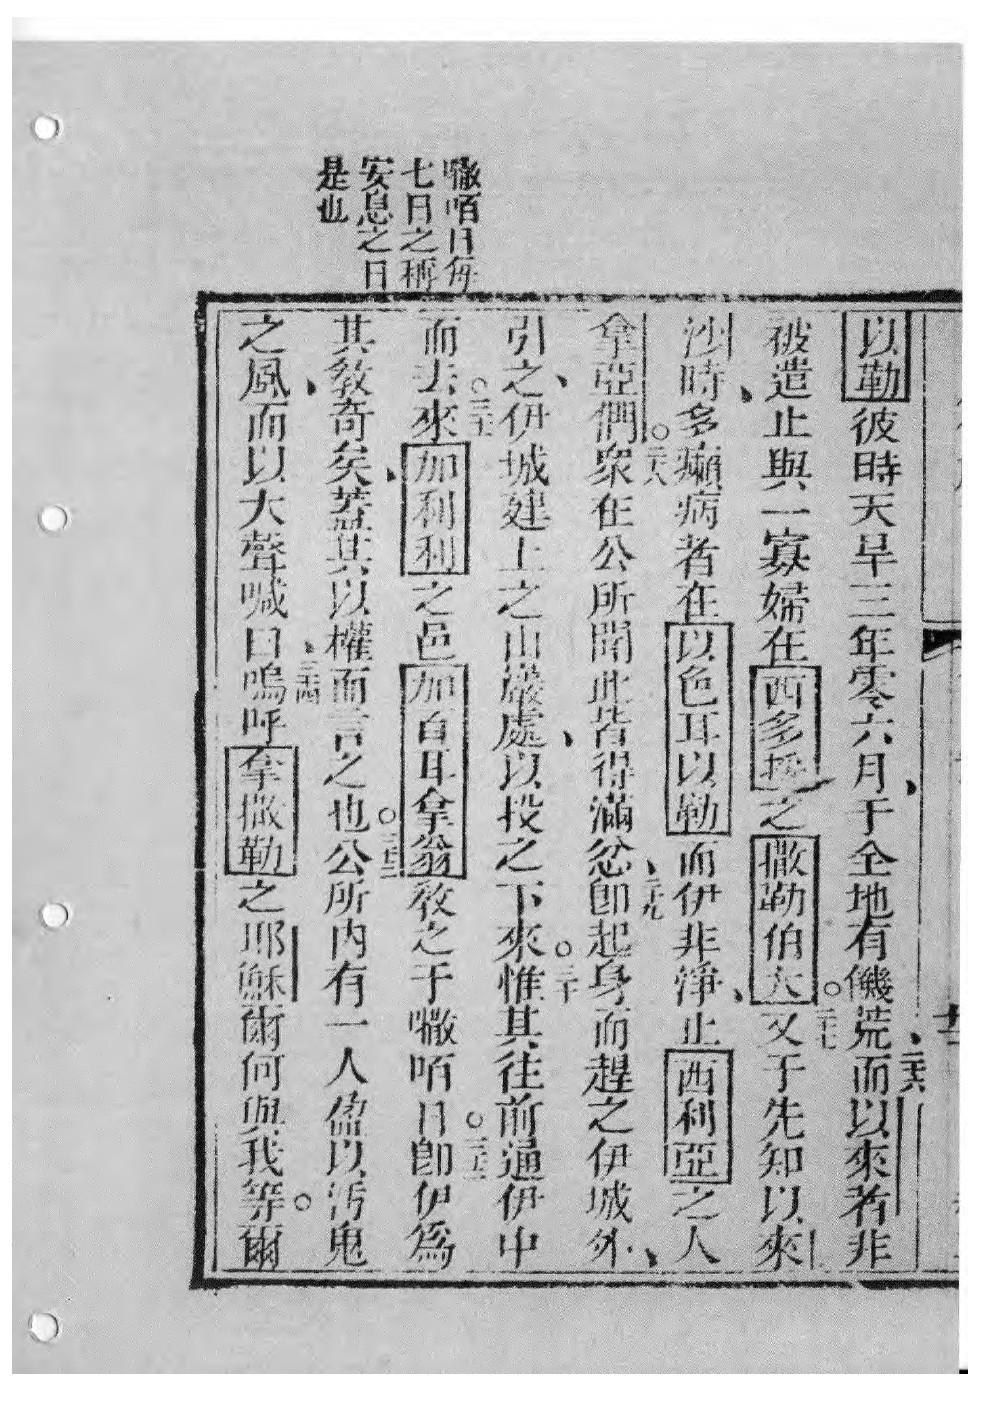 囖咟日每
七日之稱
安息之日
是也
以勒彼時天旱三年零六月于全地有饑荒而以來者非
二十六
被遣止與一寡婦在西多之撒勒伯大又于先知以來
二十七
沙時多癩病者在以色耳以勒而伊非淨止西利亞之人
拿亞們衆在公所聞此皆得滿忿卽起身而趕之伊城外
二十八
二十九
引之伊城建上之山巖處以投之下來惟其往前通伊中
三十
而去來加利利之邑加百耳拿翁教之于㘔咟日卽伊爲
三十一
三十二
其教奇矣蓋其以權而言之也公所內有一人儘以汚鬼
三十三
之風而以大聲喊曰嗚呼拿撒勒之耶穌爾何與我等爾
三十四